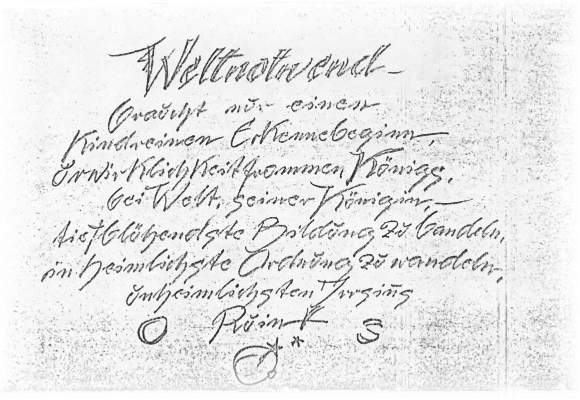 Weltnotwend –
braucht nur einen
Kindreinen Erkennebeginn,
urwirklichkeitfrommen Königs,
bei Welt, seiner Königin, –
tiefblühendste Bildung zu bandeln,
in heimlichste Ordnung zu wandeln,
unheimlichsten Irrsinns
Ruin
O S